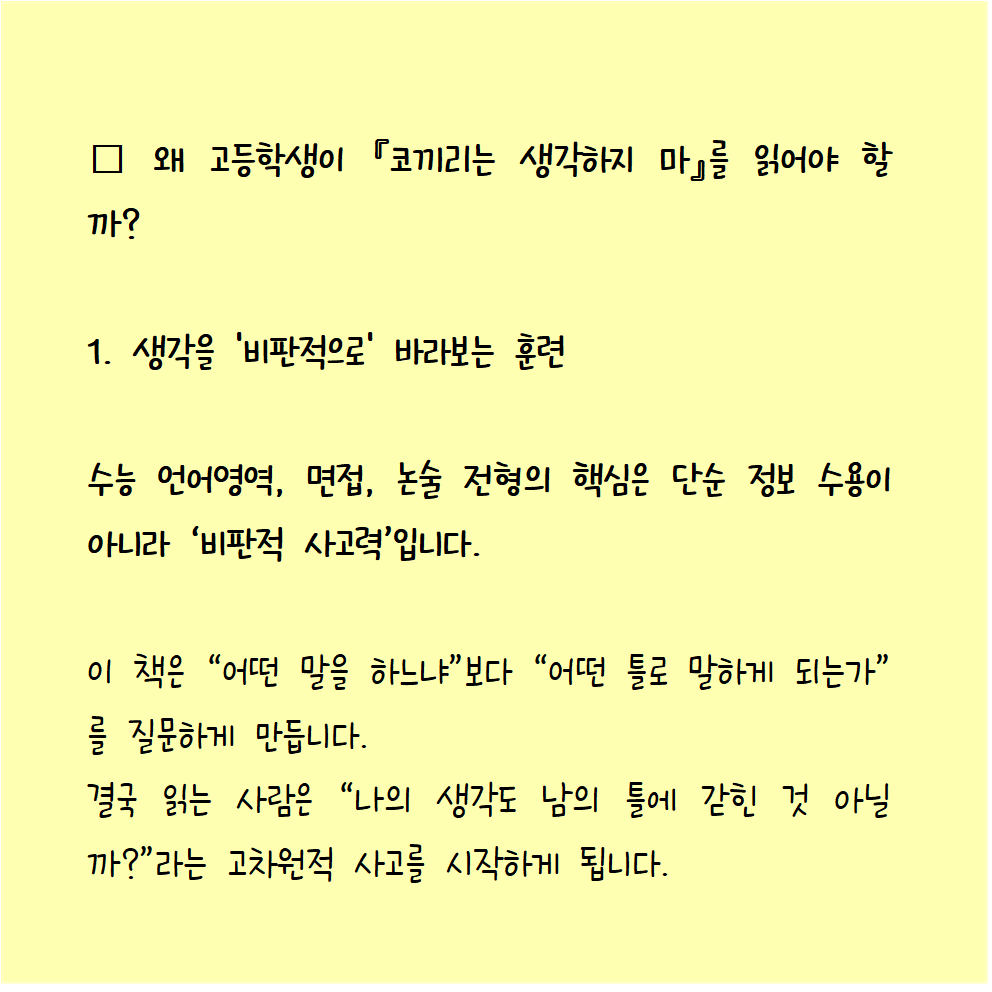 □ 왜 고등학생이 『코끼리는 생각하지 마』를 읽어야 할
까?
1. 생각을 '비판적으로' 바라보는 훈련
수능 언어영역, 면접, 논술 전형의 핵심은 단순 정보 수용이
아니라 ‘비판적 사고력’입니다.
이 책은 “어떤 말을 하느냐”보다 “어떤 틀로 말하게 되는가”
를 질문하게 만듭니다.
결국 읽는 사람은 “나의 생각도 남의 틀에 갇힌 것 아닐
까?”라는 고차원적 사고를 시작하게 됩니다.